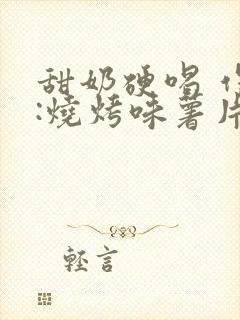 甜奶硬唱
:燒烤味薯片
輕言